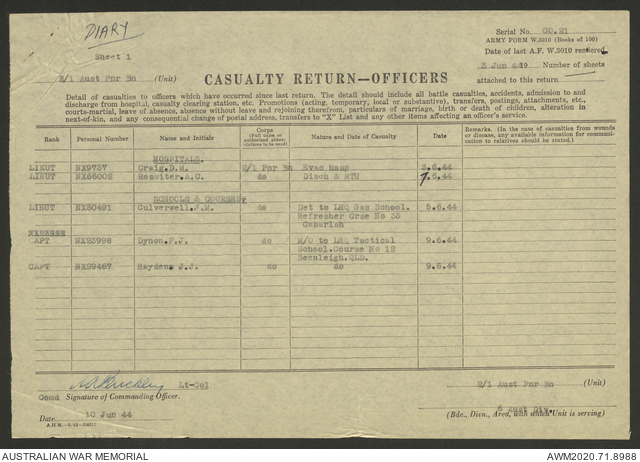 DIARY
Serial No. CO.21
ARMY FORM W.3010 (Books of 100)
Sheet 1
Date of last A.F. W.3010 rendered
3 Jun 44 Number of sheets
2/1 Aust Pnr Bn (Unit)
CASUALTY RETURN—OFFICERS
attached to this return
Detail of casualties to officers which have occurred since last return. The detail should include all battle casualties, accidents, admission to and
discharge from hospital, casualty clearing station, etc. Promotions (acting, temporary, local or substantive), transfers, postings, attachments, etc.,
courts-martial, leave of absence, absence without leave and rejoining therefrom, particulars of marriage, birth or death of children, alteration in
next-of-kin, and any consequential change of postal address, transfers to "X" List and any other items affecting an officer's service.
Rank Personal Number Name and Initials Corps (Full titles or authorized abbreviations to be used) Nature and Date of Casualty Date Remarks. (In the case of casualties from wounds or disease, any available information for communication to relatives should be stated.)
HOSPITALS.
LIEUT NX9737 Craig.D.M. 2/1 Pnr Bn Evac hosp 3.6.44
LIEUT NX66002 Rossiter.A.C. do Disch & RTU 7.6.44
SCHOOLS & COURSES.
LIEUT NX50491 Culverwell.J.M. do Det to LHQ Gas School.
Refresher Crse No 33
Cabarlah 5.6.44
CAPT NX23998 Dynon.F.J. do M/O to LHQ Tactical 9.6.44
School.Course No 12
Beenleigh.QLD.
CAPT NX29467 Hayden. J.J. do do 9.6.44
Lt-Col
Comd Signature of Commanding Officer.
2/1 Aust Pnr Bn (Unit)
Date 10 Jun 44
6 Aust Div.
(Bde., Divn., Area, with which Unit is serving)
AUSTRALIAN WAR MEMORIAL
AWM2020.71.8988